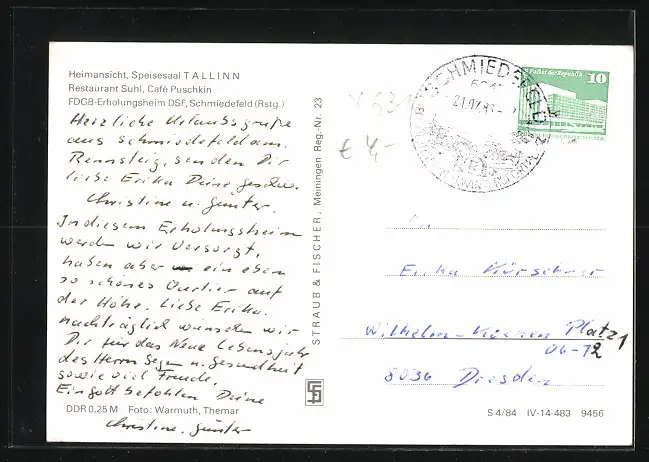 Heimansicht, Speisesaal TALLINN
Restaurant Suhl, Café Puschkin
FDGB-Erholungsheim DSF, Schmiedefeld (Rstg.)
Herzliche Urlaubsgrüße
aus Schmiedefeld am
Rennsteig, senden Dir
liebe Erika Deine
Christine u. Günter.
In diesem Erholungsheim
werden wir versorgt,
haben aber ein eben
so schönes Quartier auf
der Höhe. Liebe Erika.
nachträglich wünschen wir
Dir für das Neue Lebensjahr
des Herrn Segen u. Gesundheit
sowie viel Freude.
Ein gott befohlen Deine
Christine, Günter
DDR 0,25 M Foto: Warmuth, Themar
STRAUB & FISCHER, Meiningen Reg.-Nr. 23
€ 4,-
SCHMIEDEFELD
Palast der Republik 10
Erika
Wilhelm- Platz 1
06-12
8036 Dresden
S 4/84 IV-14-483 9456